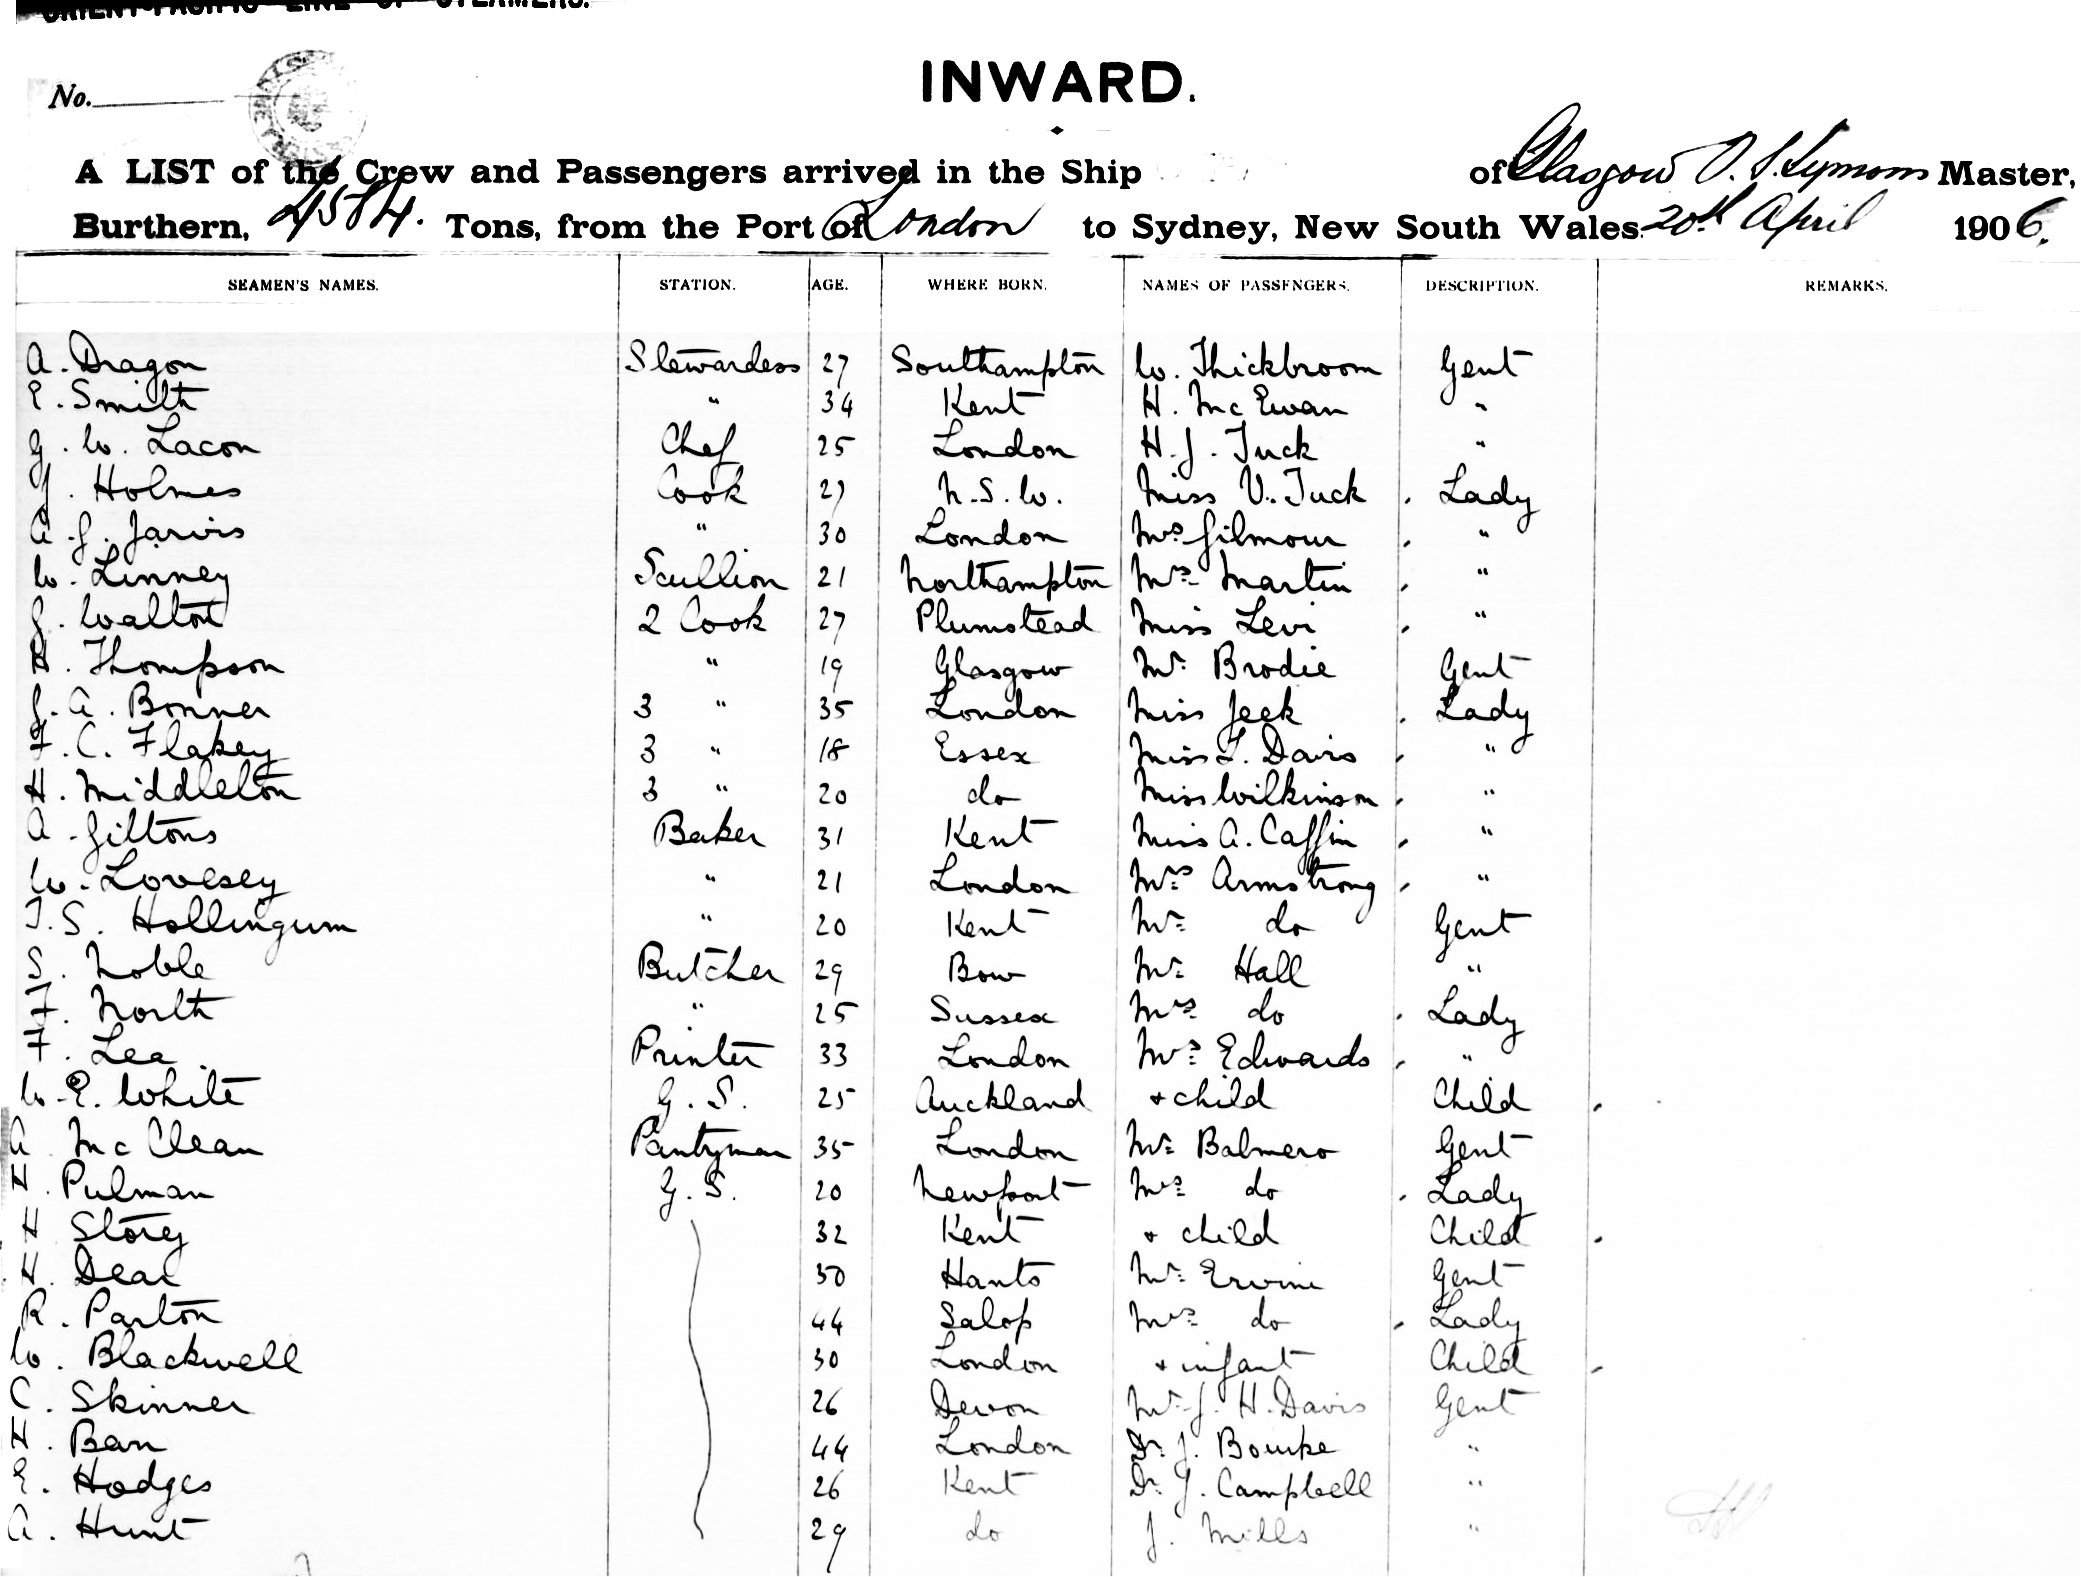 ORIENT-PACIFIC LINE OF STEAMERS.
INWARD.
No.
A LIST of the Crew and Passengers arrived in the Ship of Glasgow Symons Master,
Burthern, 4584. Tons, from the Port of London to Sydney, New South Wales. 20th April 1906.
SEAMEN'S NAMES. STATION. AGE. WHERE BORN. NAMES OF PASSENGERS. DESCRIPTION. REMARKS.
A. Dragon Stewardess 27 Southampton W. Thickbroom Gent
E. Smith " 34 Kent H. McEwan "
G. W. Lacon Chef 25 London H. J. Tuck "
J. Holmes Cook 27 N.S.W. Miss V. Tuck Lady
A. J. Jarvis " 30 London Mrs Gilmour "
W. Linney Scullion 21 Northampton Mrs Martin "
J. Walton 2 Cook 27 Plumstead Miss Levi "
H. Thompson " 19 Glasgow Mr. Brodie Gent
J. A. Bonner 3 " 35 London Miss Jeek Lady
F. C. Flakey 3 " 18 Essex Miss L. Davis "
H. Middleton 3 " 20 do Miss Wilkinson "
A. Giltons Baker 31 Kent Miss A. Caffin "
W. Lovesey " 21 London Mrs Armstrong "
T. S. Hollingum " 20 Kent Mr do Gent
S. Noble Butcher 29 Bow Mr Hall "
F. North " 25 Sussex Mrs do Lady
F. Lea Printer 33 London Mrs Edwards "
W. E. White G. S. 25 Auckland + child Child
A McClean Pantryman 35 London Mr Balmero Gent
H. Pulman G. S. 20 Newport Mrs do Lady
H Storey 32 Kent + child Child
H. Dear 50 Hants Mr Ervine Gent
R. Parton 44 Salop Mrs do Lady
W. Blackwell 30 London + infant Child
C. Skinner 26 Devon Mr J. H. Davis Gent
H. Ban 44 London Dr. J. Bourke "
E. Hodges 26 Kent Dr. J. Campbell "
A. Hunt 29 do J. Mills "